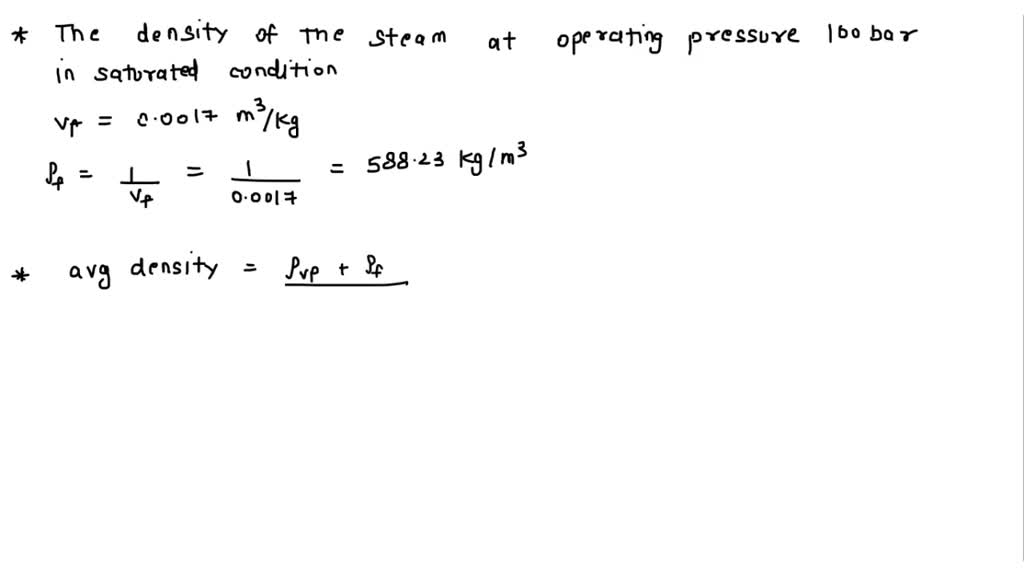 * The density of the steam at operating pressure 160 bar
in saturated condition
vf = 0.0017 m³/kg
ρf = 1/vf = 1/0.0017 = 588.23 kg/m³
* avg density = ρvp + ρf